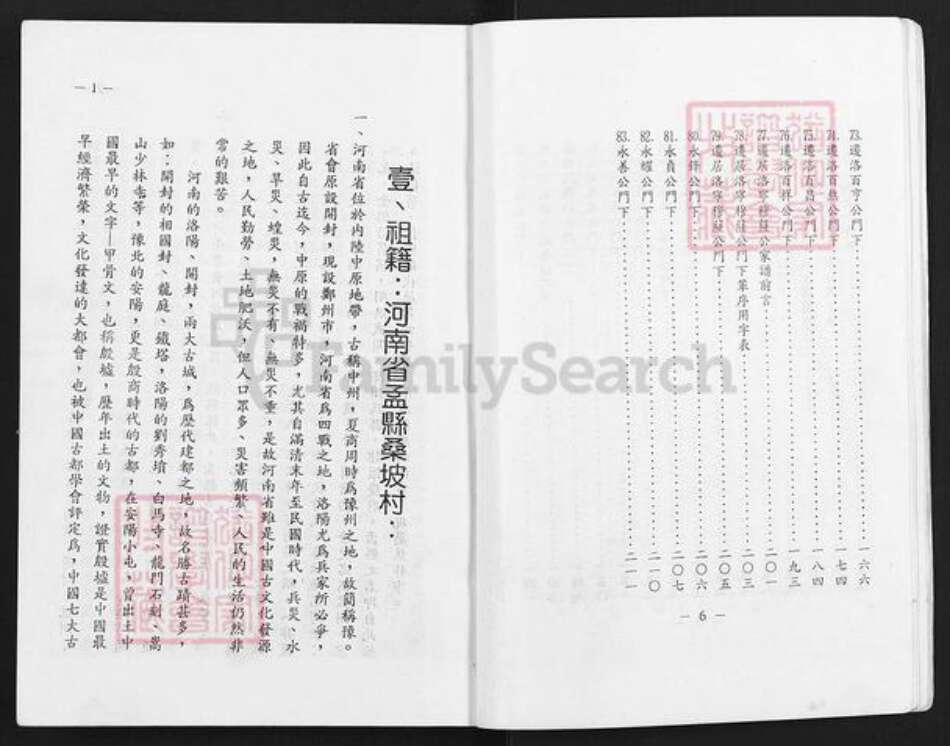 73.遷洛百亨公門下……一六六
74.遷洛百燕公門下……一七四
75.遷洛百昌公門下……一八四
76.遷洛百祥公門下……一九三
77.遷居洛寧穆蘇公家譜前言……二〇一
78.遷居洛寧穆蘇公門下輩序用字表……二〇三
79.遷居洛寧穆蘇公門下……二〇五
80.永錦公門下……二〇六
81.永貞公門下……二〇七
82.永耀公門下……二一〇
83.永善公門下……二一一
— 6 —
壹、祖籍：河南省孟縣桑坡村：
一、河南省位於內陸中原地帶，古稱中州，夏商周時為豫州之地，故簡稱豫。
省會原設開封，現設鄭州市，河南省為四戰之地，洛陽尤為兵家所必爭，
因此自古迄今，中原的戰禍特多，尤其自滿清末年至民國時代，兵災、水
災、旱災、蝗災，無災不有、無災不重，是故河南省雖是中國古文化發源
之地，人民勤勞、土地肥沃，但人口眾多、災害頻繁、人民的生活仍然非
常的艱苦。
河南的洛陽、開封，兩大古城，為歷代建都之地，故名勝古蹟甚多，
如：開封的相國封、龍庭、鐵塔，洛陽的劉秀墳、白馬寺、龍門石刻、嵩
山少林寺等，豫北的安陽，更是殷商時代的古都，在安陽小屯，曾出土中
國最早的文字—甲骨文，也稱殷墟，歷年出土的文物，證實殷墟是中國最
早經濟繁榮，文化發達的大都會，也被中國古都學會評定為，中國七大古
— 1 —
FamilySearch